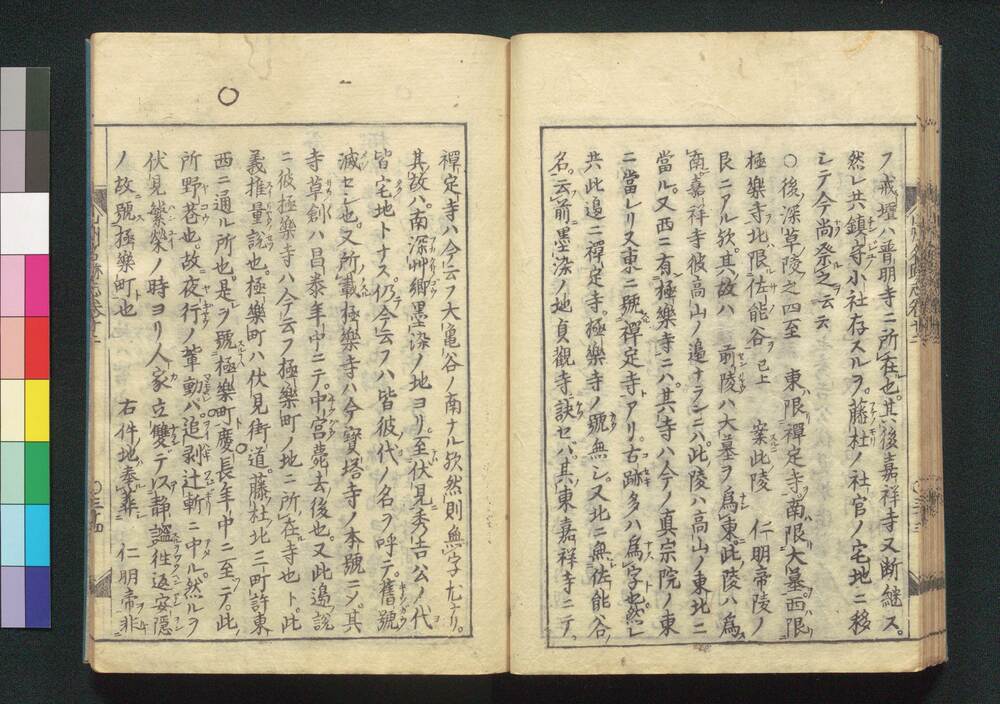 フ戒壇ハ普明寺ニ所在也。其後嘉祥寺又断継ス。
然レ共鎮守小社存スルヲ。藤杜ノ社官ノ宅地ニ移
シテ今尚祭之云云
○後深草陵之四至 東限禪定寺南限大墓西限
極樂寺北限佐能谷已上 案此陵 仁明帝陵ノ
艮ニアル欤。其故ハ 前陵ハ大墓ヲ爲東。此陵ハ爲
南。嘉祥寺彼高山ノ邉ナランニハ。此陵ハ高山ノ東北ニ
當ル。又西ニ有極樂寺ニハ。其寺ハ今ノ真宗院ノ東
ニ當レリ又東ニ號禪定寺アリ。古跡多ハ爲字也。然レ
共此邉ニ禪定寺。極樂寺ノ號無シ。又北ニ無佐能谷ノ
名。云前墨染ノ地貞觀寺訣セバ。其東嘉祥寺ニテ
禪定寺ハ今云フ大亀谷ノ南ナル欤然則無字尤ナリ。
其故ハ。南深艸郷墨染ノ地ヨリ。至伏見秀吉公ノ代
皆宅地トナス。仍今云フハ皆彼代ノ名ヲ呼テ。舊號
滅セシ也。又所載極樂寺ハ今寳塔寺ノ本號ニメ。其
寺草創ハ昌泰年中ニテ。中宮薨去後也。又此邉説
ニ彼極樂寺ハ今云フ極樂町ノ地ニ所在寺也ト。此
義推量説也。極樂町ハ伏見街道。藤杜北三町許東
西ニ通ル所也。是ヲ號極樂町慶長年中ニ至テ。此
所野巷也。故夜行ノ輩動バ追剥辻斬ニ中ル。然ルヲ
伏見繁榮ノ時ヨリ人家立雙デス。靜謐徃返安隠
ノ故號極樂町也 右件地奉葬 仁明帝非